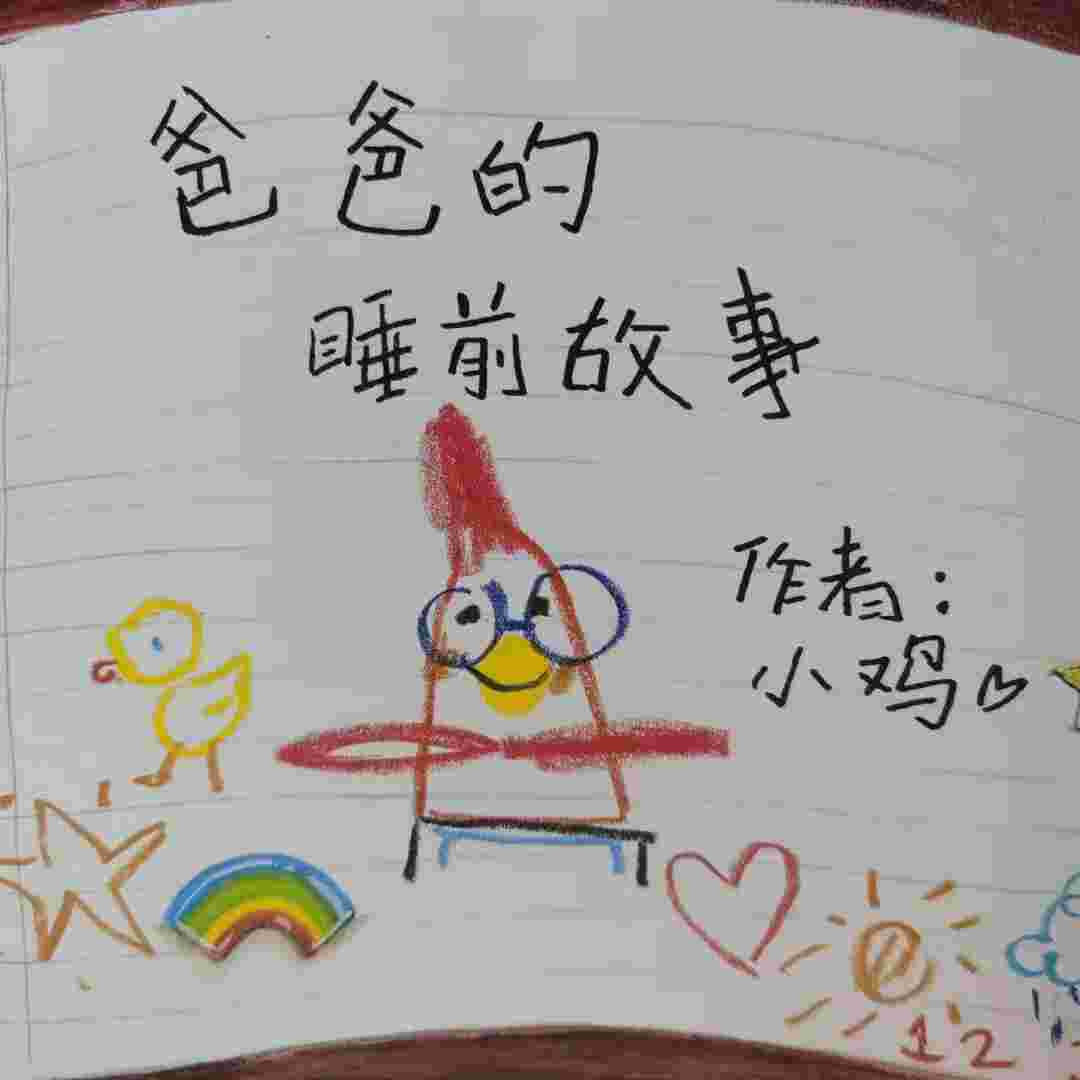 爸爸的
睡前故事
作者：
小鸡
12